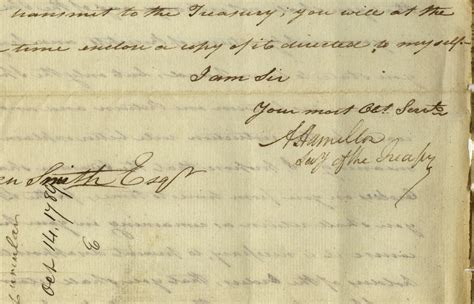 transmit to the Treasury; you will at the
time enclose a copy of it directed to myself.
I am Sir
Your most Obt Servt
A Hamilton
Secy of the Treasy
Smith Esqr
Oct 14. 1789
E
Circular